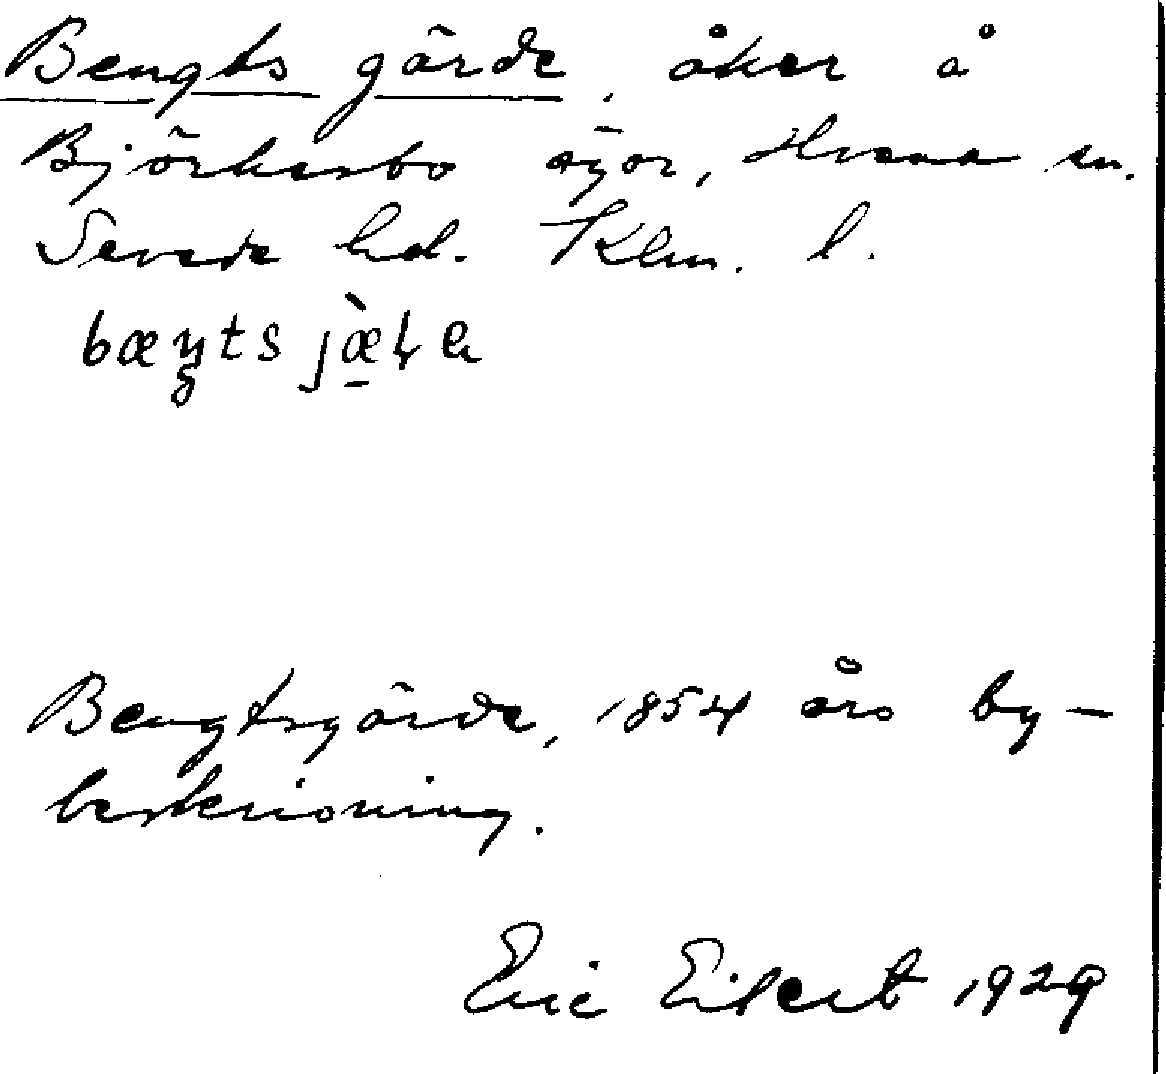 Bengts gärde, åker å
Björkesbo ägor, Hvena sn.
Sevede hd. Klm. l.
Bengtsgärde, 1854 års by-
beskrivning.
Eric Eilert 1929